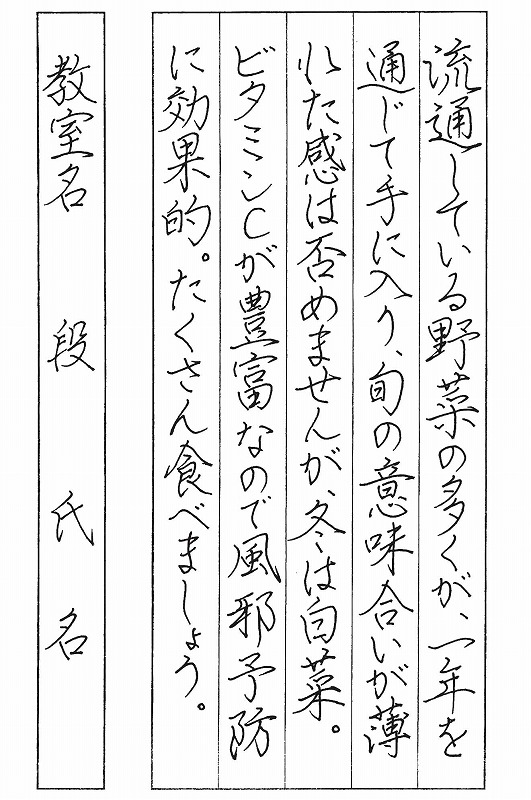 流通している野菜の多くが、一年を
通じて手に入り、旬の意味合いが薄
れた感は否めませんが、冬は白菜。
ビタミンCが豊富なので風邪予防
に効果的。たくさん食べましょう。
教室名 段 氏名